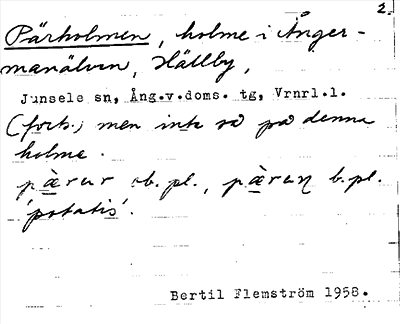 2.
Pärholmen, holme i Ånger-
manälven, Hällby,
Junsele sn, Ång.v.doms. tg, Vrnrl.l.
(forts.) men inte så på denna
holme.
pærur ob.pl., pæ̀ruɳ b.pl.
'potatis'.
Bertil Flemström 1958.